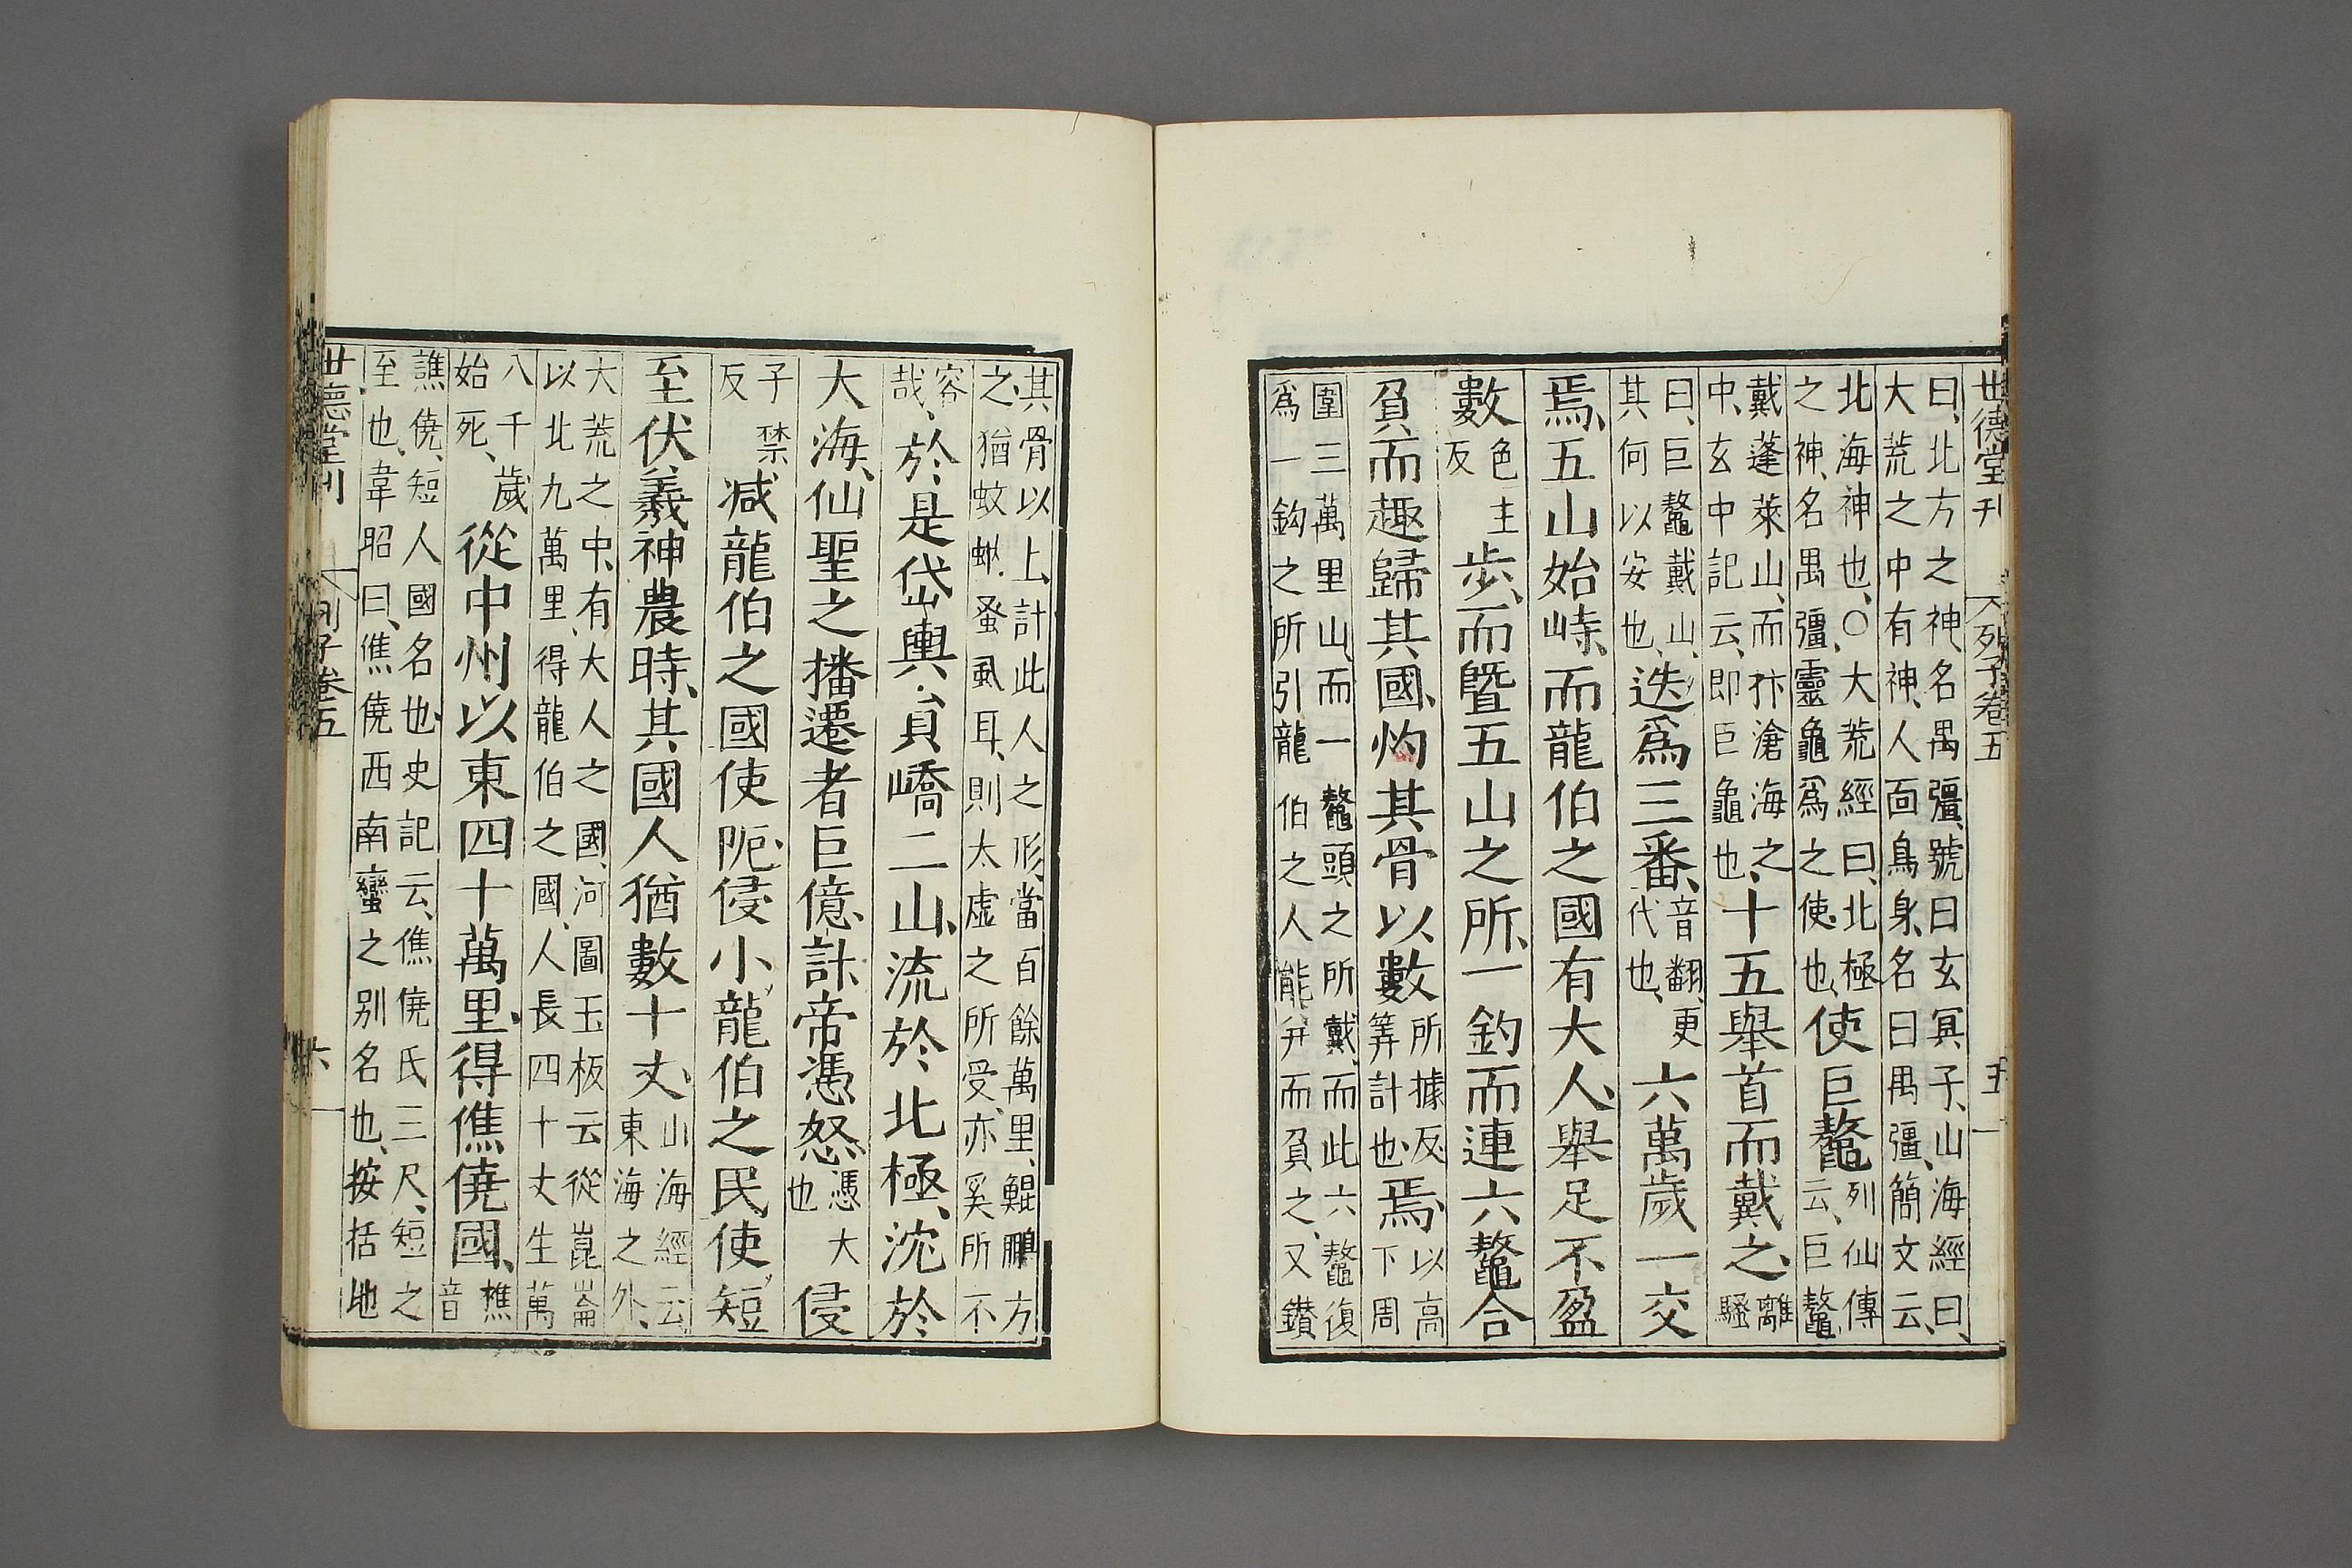 世德堂刊 列子卷五 五
曰、北方之神、名禺彊、號曰玄冥子、山海經曰、
大荒之中有神、人面鳥身、名曰禺彊、簡文云、
北海神也、○大荒經曰、北極
之神、名禺彊、靈龜爲之使也、使巨鼇列仙傳
云、巨鼇
戴蓬萊山、而抃滄海之
中、玄中記云、即巨龜也、十五舉首而戴之、離
騷
曰、巨鼇戴山、
其何以安也、迭爲三番、音翻、更
代也、六萬歲一交
焉、五山始峙、而龍伯之國有大人、舉足不盈
數色主
反步、而暨五山之所、一釣而連六鼇合
負、而趣歸其國、灼其骨以數所據反
筭計也、焉、以高
下周
圍三萬里山、而一鼇頭之所戴、而此六鼇復
爲一鈎之所引、龍伯之人能并而負之、又鑚
其骨以上、計此人之形、當百餘萬里、鯤鵬方
之、猶蚊蚋蚤虱耳、則太虛之所受、亦奚所不
容
哉、於是岱輿、員嶠二山、流於北極、沈於
大海、仙聖之播遷者巨億計、帝憑怒、憑大
也侵
子禁
反減龍伯之國使阨、侵小龍伯之民使短、
至伏羲神農時、其國人猶數十丈、山海經云、
東海之外、
大荒之中、有大人之國、河圖玉板云、從崑崙
以北九萬里、得龍伯之國、人長四十丈、生萬
八千歲
始死、從中州以東四十萬里、得僬僥國、樵
音
譙僥、短人國名也、史記云、僬僥氏三尺、短之
至也、韋昭曰、僬僥西南蠻之别名也、按括地
世德堂刊 列子卷五 六